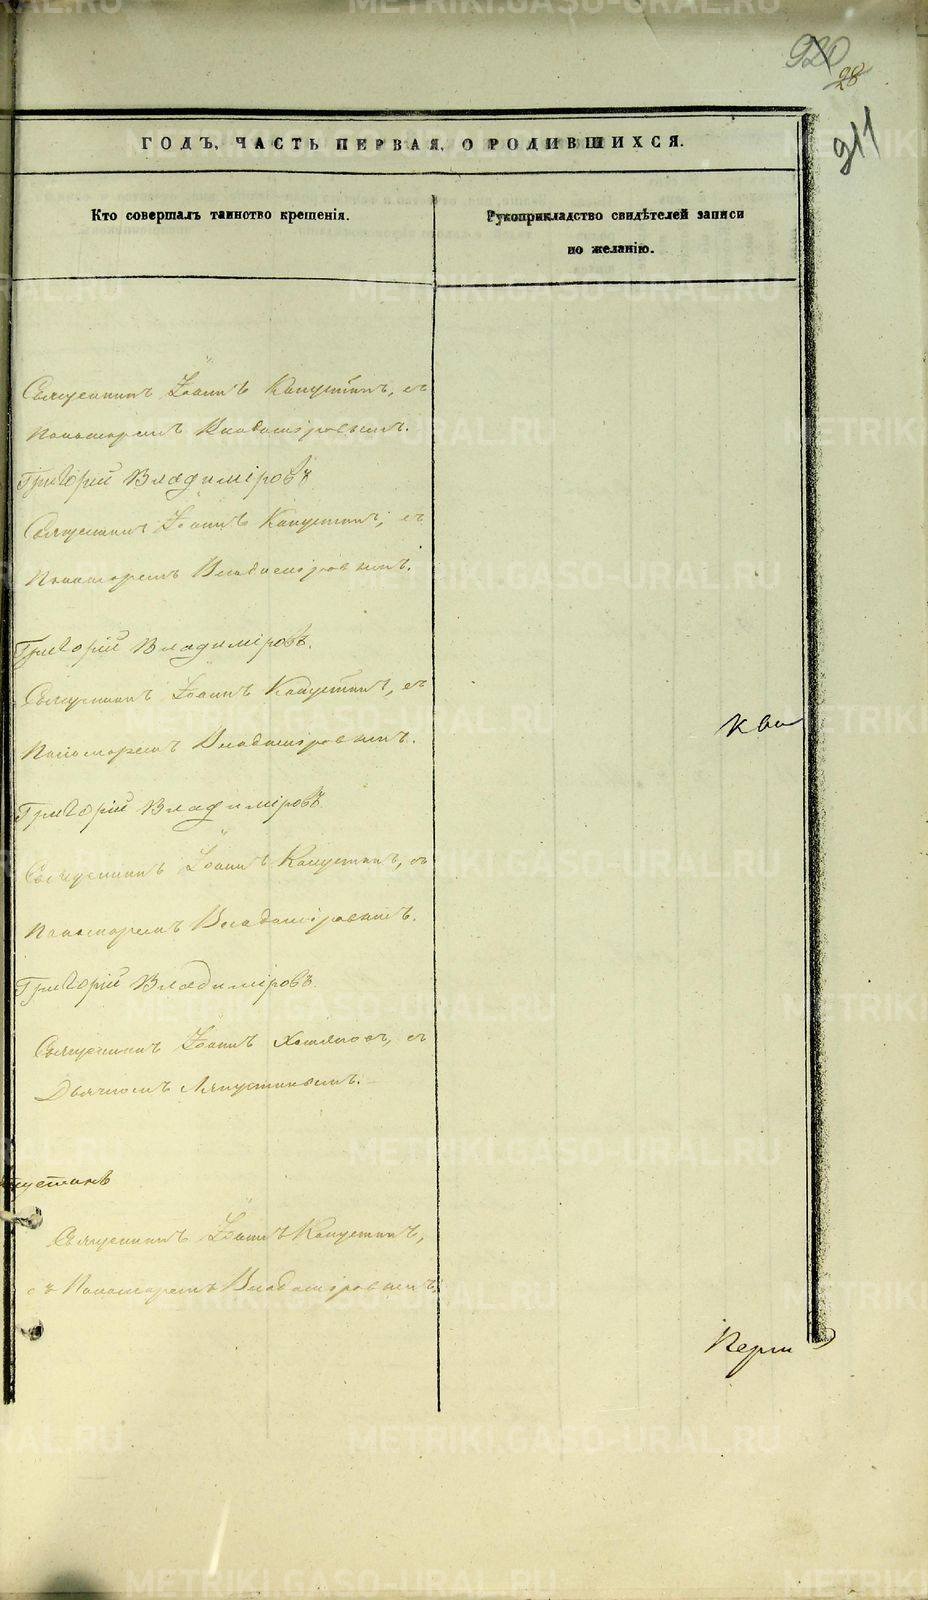 920
28
911
ГОДЪ, ЧАСТЬ ПЕРВАЯ, О РОДИВШИХСЯ.
Кто совершалъ таинство крещенія.
Рукоприкладство свидѣтелей записи
по желанію.
Священникъ Іоаннъ Капустинъ, съ
Пономаремъ Владиміровымъ.
Григорій Владиміровъ
Священникъ Іоаннъ Капустинъ, съ
Пономаремъ Владиміровымъ.
Григорій Владиміровъ.
Священникъ Іоаннъ Капустинъ, съ
Пономаремъ Владиміровымъ.
Григорій Владиміровъ
Священникъ Іоаннъ Капустинъ, съ
Пономаремъ Владиміровымъ.
Григорій Владиміровъ
Священникъ Іоаннъ съ
Дьячкомъ Ляпустинымъ.
пустинъ
Священникъ Іоаннъ Капустинъ,
съ Пономаремъ Владиміровымъ
METRIKI.GASO-URAL.RU